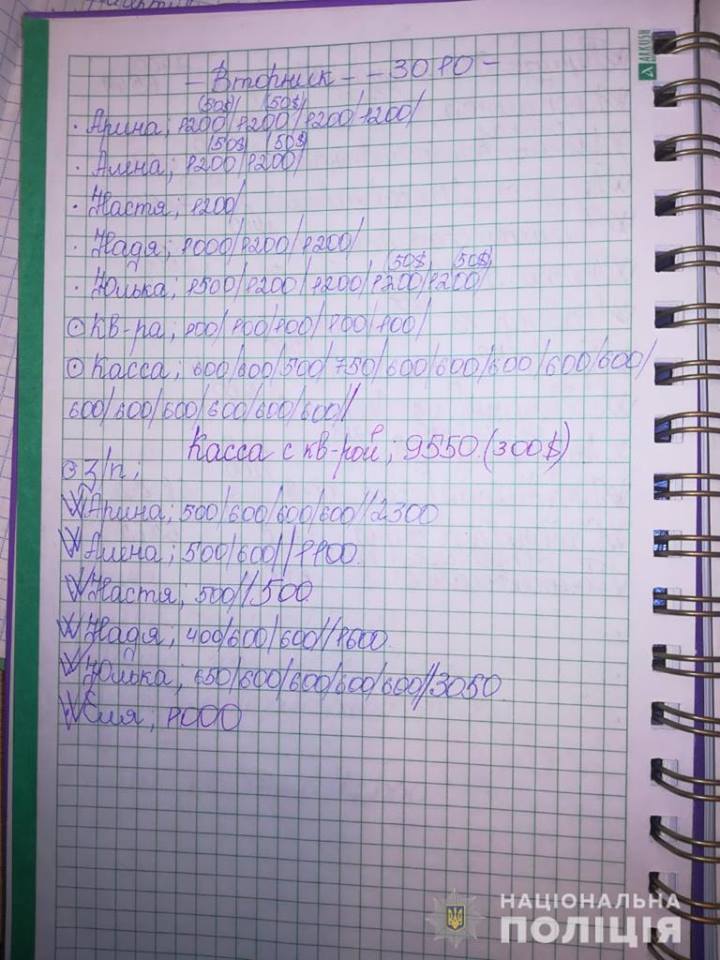 - Вторник - - 3010 -
(50$) (50$)
· Арина; 1200/1200/1200/1200/
(50$) (50$)
· Алена; 1200/1200/
· Настя; 1200/
· Надя; 1000/1200/1200/
(50$) (50$)
· Юлька; 1500/1200/1200/1200/1200/
⊙ КВ-ра; 100/100/100/100/100/
⊙ Касса; 600/600/500/750/600/600/600/600/600/
600/600/600/600/600/600//
Касса с кв-рой; 9550 (300$)
⊙ З/п;
Арина; 500/600/600/600//2300
Алена; 500/600//1100
Настя; 500//500
Надя; 400/600/600//1600
Юлька; 650/600/600/600/600//3050
Еля; 1000
ALKUSH
НАЦІОНАЛЬНА
ПОЛІЦІЯ